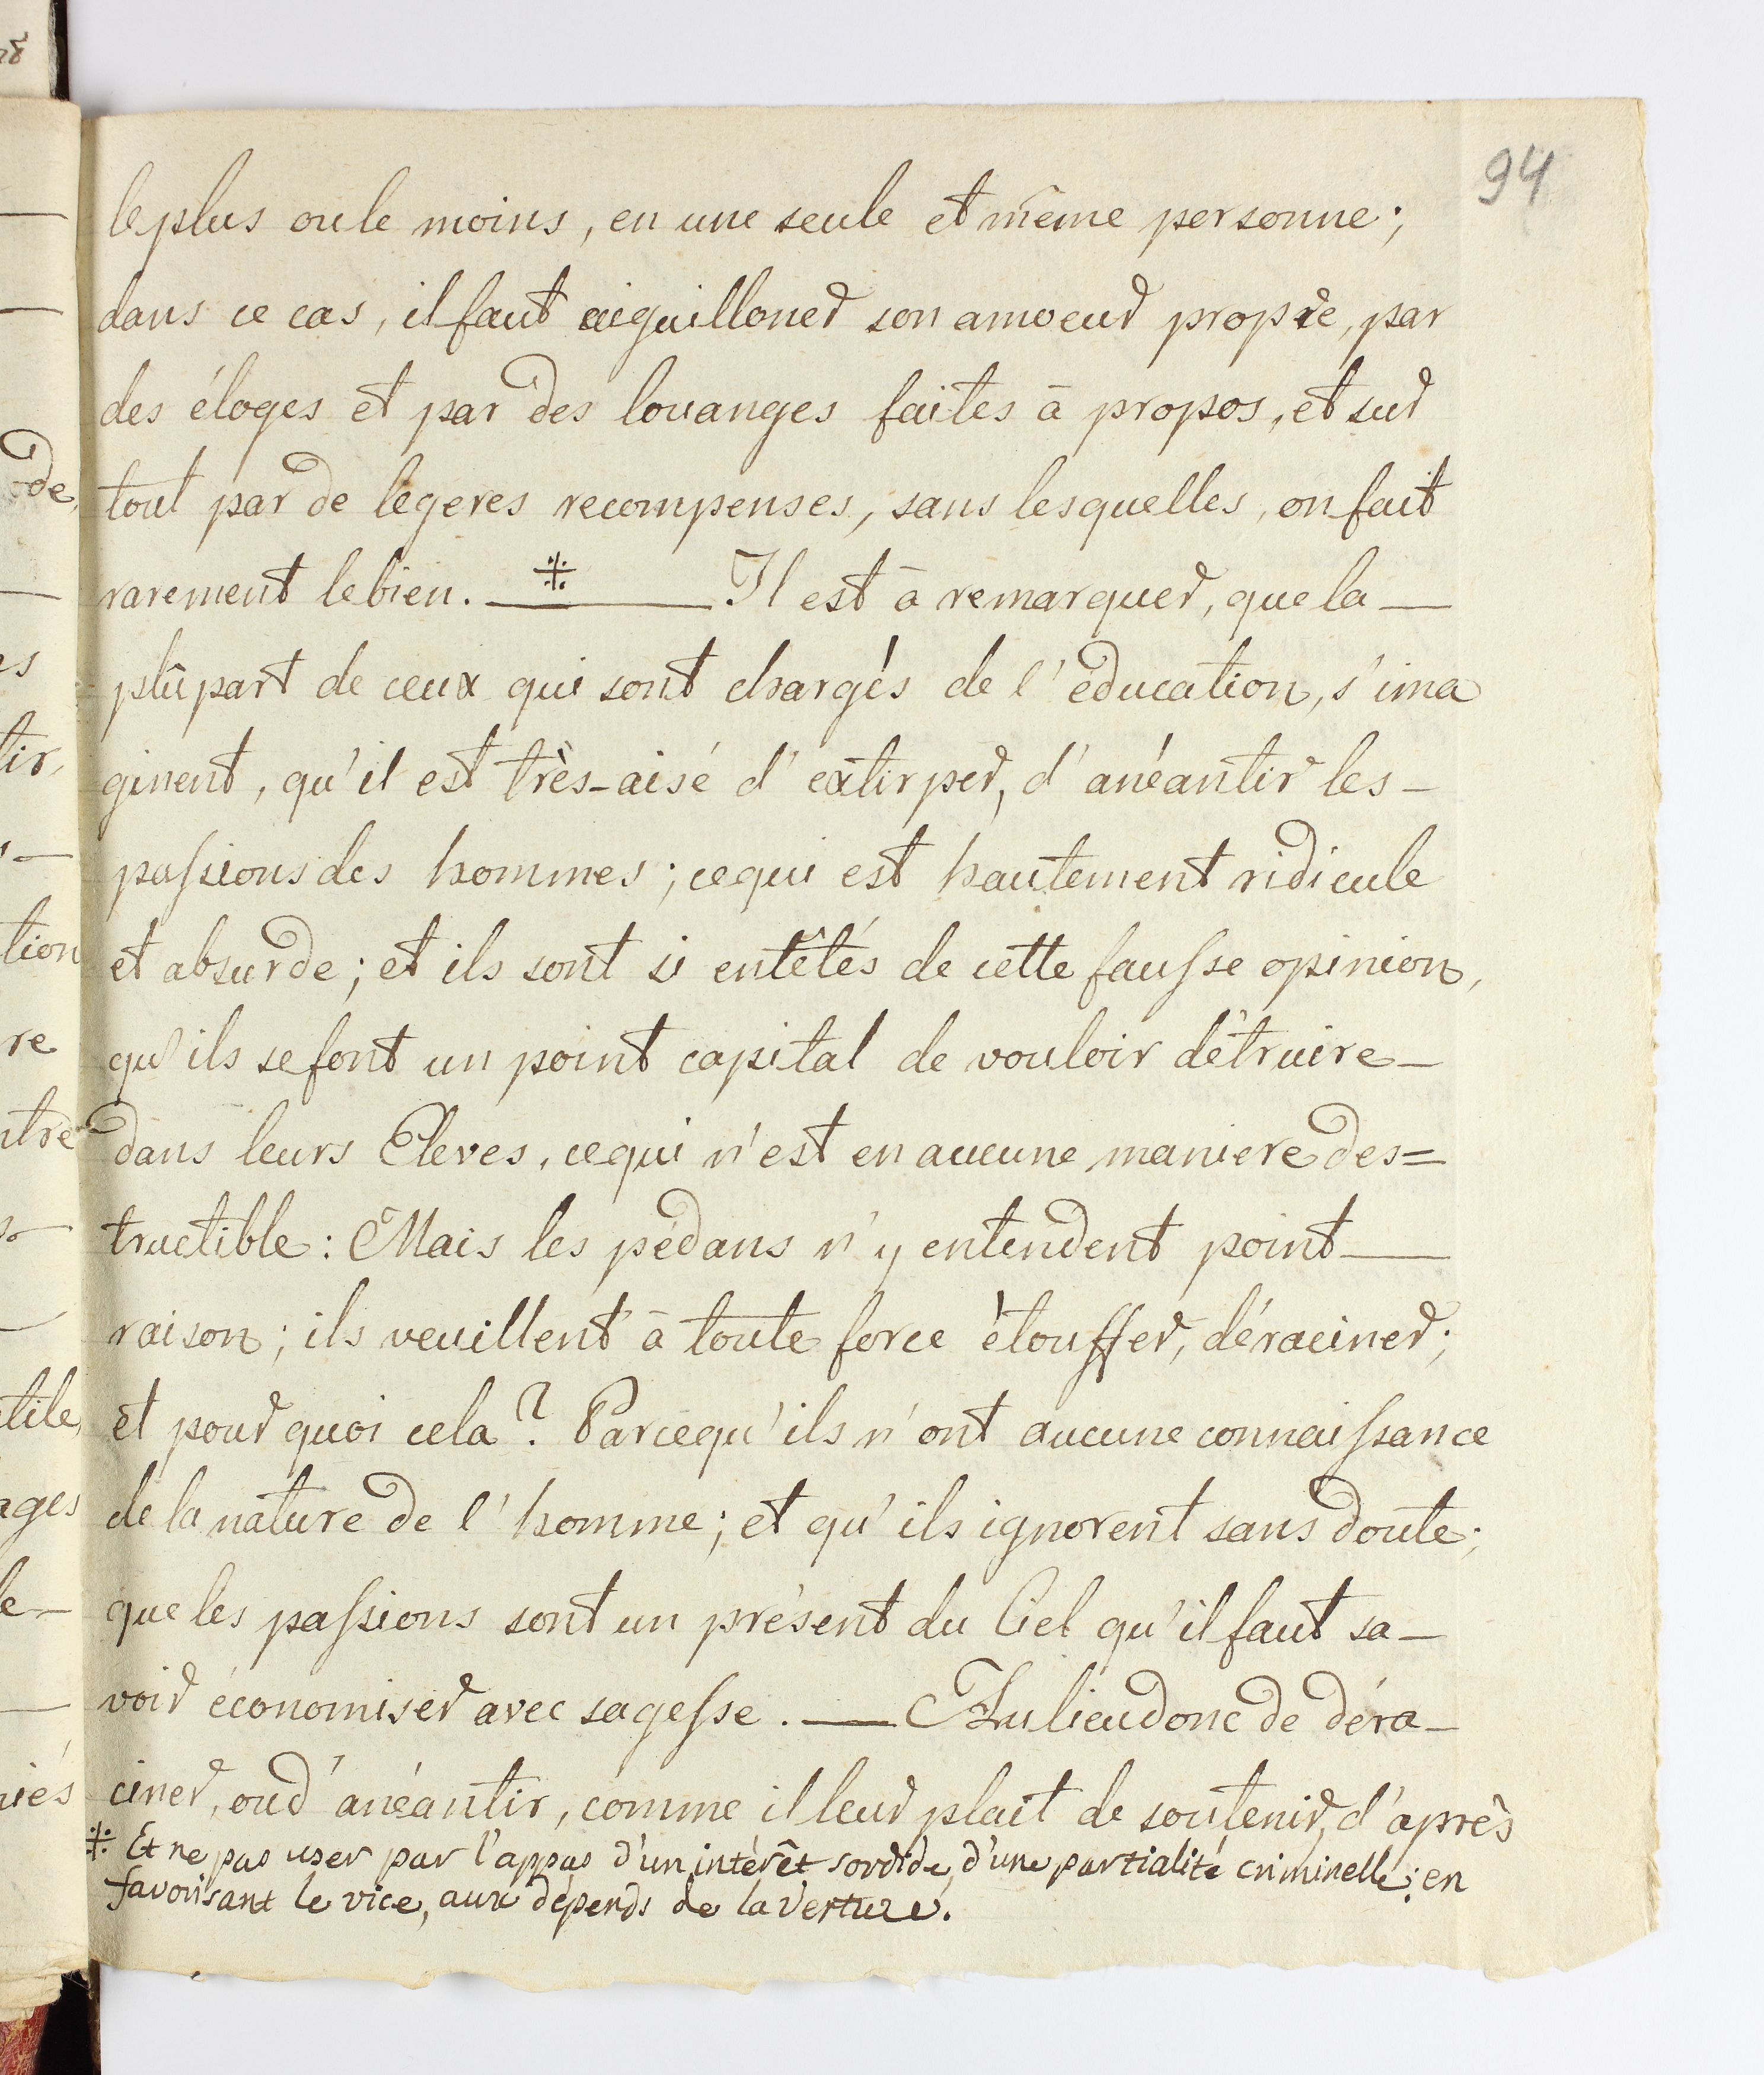 94
le plus ou le moins, en une seule et même personne;
dans ce cas, il faut aiguilloner son amoeur propre, par
des éloges et par des louanges faites à propos, et sur
tout par de légeres recompenses, sans lesquelles, on fait
rarement le bien. — * — Il est à remarquer, que la —
plûpart de ceux qui sont chargés de l'éducation, s'ima
ginent, qu'il est très-aisé d'extirper, d'anéantir les —
paſsions des hommes; ce qui est hautement ridicule
et absurde; et ils sont si entêtés de cette fauſse opinion,
qu'ils se font un point capital de vouloir détruire —
dans leurs Eleves, ce qui n'est en aucune maniere des=
tructible: Mais les pédans n'y entendent point —
raison; ils veuillent à toute force étouffer, déraciner;
et pour quoi cela? Parcequ'ils n'ont aucune connaiſsance
de la nature de l'homme; et qu'ils ignorent sans doute;
que les paſsions sont un présent du Ciel qu'il faut sa-
voir économiser avec sageſse. — Au lieu donc de déra-
ciner, ou d'anéantir, comme il leur plait de soutenir, d'après
* Et ne pas user par l'appas d'un intérêt sordide, d'une partialité criminelle; en
favorisant le vice, aux dépends de la Verture.
ode,
tir,
tion
re
ntre
tile,
ages
le —
niés